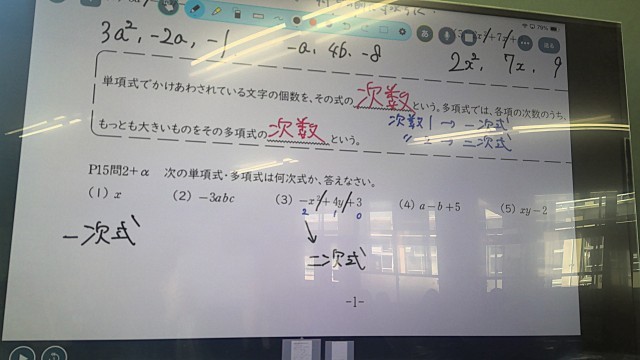 3a², -2a, -1
-a, 4b, -8
2x², 7x, 9
単項式でかけあわされている文字の個数を、その式の 次数 という。多項式では、各項の次数のうち、
次数1 → 一次式
もっとも大きいものをその多項式の 次数 という。
〃 2 → 二次式
P15問2+α 次の単項式・多項式は何次式か、答えなさい。
(1) x (2) -3abc (3) -x²/+4y/+3 (4) a-b+5 (5) xy-2
2 1 0
一次式
↓
二次式
-1-